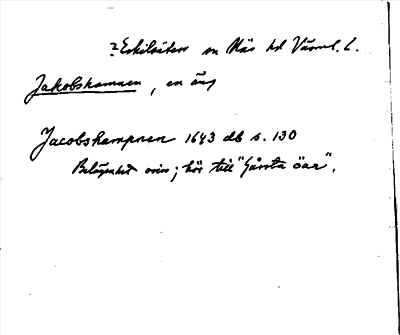 ? Eskilsäter sn Näs hd Värml. l.
Jakobshamnen, en äng
Jacobshampnen 1643 db s. 130
Belägenhet oviss; hör till "Gårsta öar".